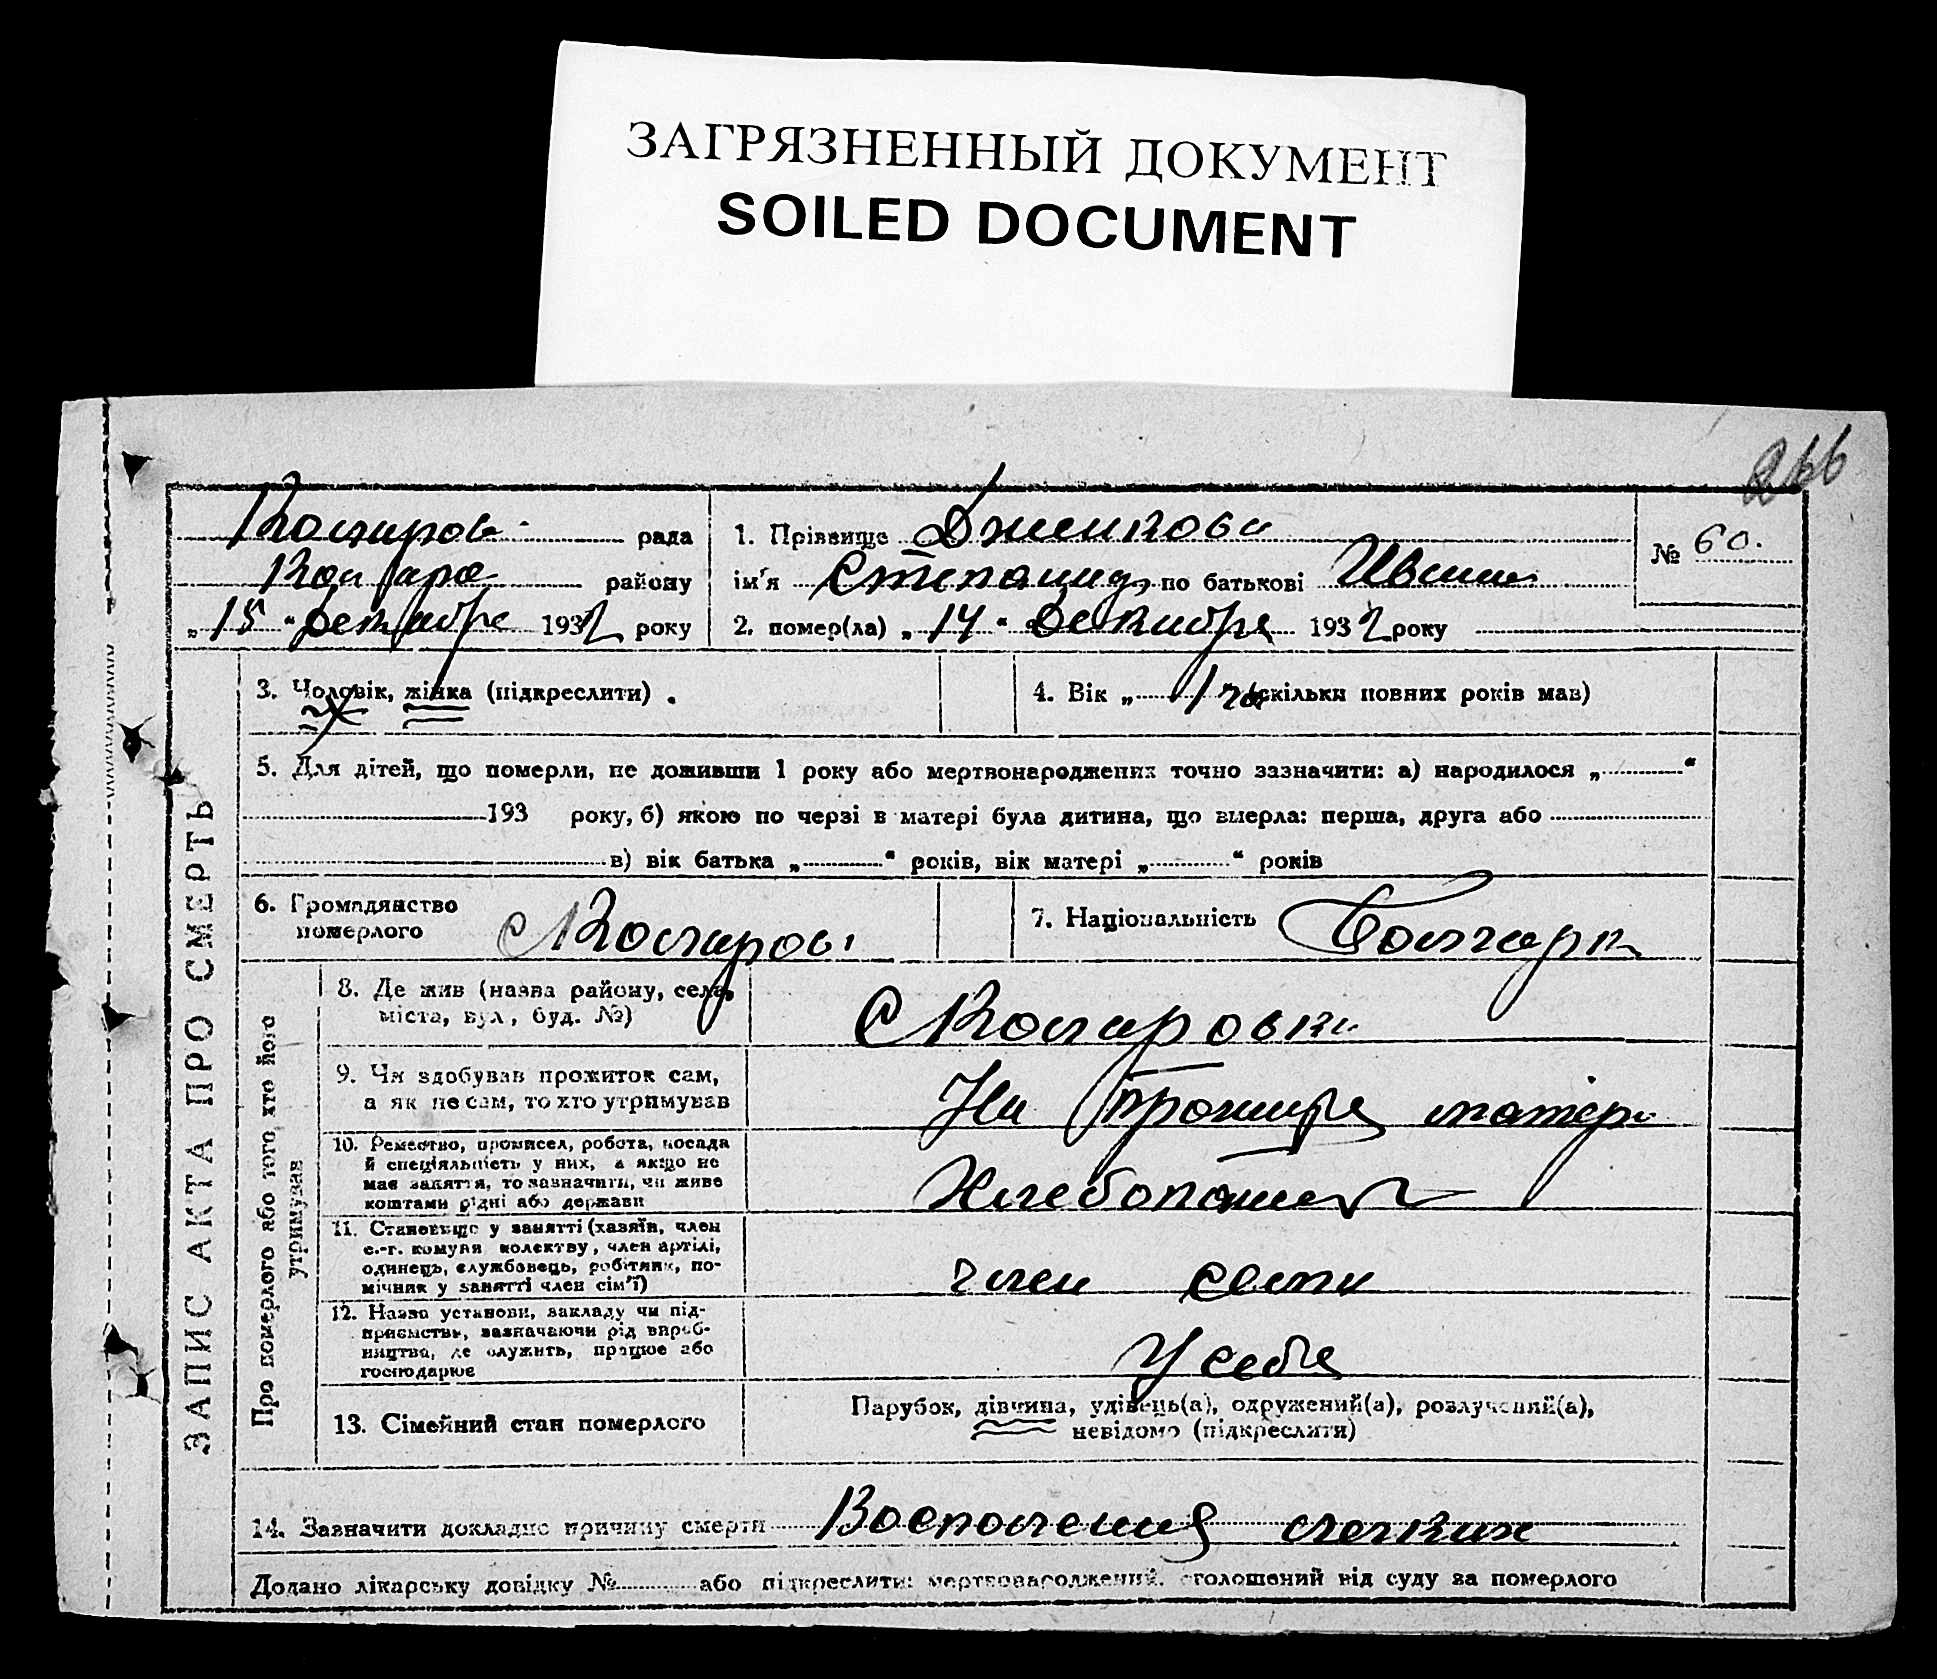 ЗАГРЯЗНЕННЫЙ ДОКУМЕНТ
SOILED DOCUMENT
266
рада
району
„15“ декабре 1932 року
1. Прізвище
ім'я Степанида по батькові
2. помер(ла) „14“ декабря 1932 року
№ 60.
ЗАПИС АКТА ПРО СМЕРТЬ
3. Чоловік, жінка (підкреслити).
4. Вік „1 (скільки повних років мав)
5. Для дітей, що померли, не доживши 1 року або мертвонароджених точно зазначити: а) народилося „ “
193 року, б) якою по черзі в матері була дитина, що вмерла: перша, друга або
в) вік батька „ “ років, вік матері „ “ років
6. Громадянство
померлого
7. Національність Болгарк
Про померлого або того, хто його
утримував
8. Де жив (назва району, села,
міста, вул., буд. №)
9. Чи здобував прожиток сам,
а як не сам, то хто утримував
матери
10. Ремество, промисел, робота, посада
й спеціяльність у них, а якщо не
має заняття, то зазначити, чи живе
коштами рідні або держави
11. Становище у занятті (хазяїн, член
с.-г. комуни колективу, член артілі,
одинець, службовець, робітник, по-
мічник у занятті член сім'ї)
член семи
12. Назва установи, закладу чи під-
приємства, зазначаючи рід вироб-
ництва, де служить, працює або
господарює
У себе
13. Сімейний стан померлого
Парубок, дівчина, удівець(а), одружений(а), розлучений(а),
невідомо (підкреслити)
14. Зазначити докладно причину смерти Восполения легких
Додано лікарську довідку № або підкреслити: мертвонароджений, оголошений від суду за померлого